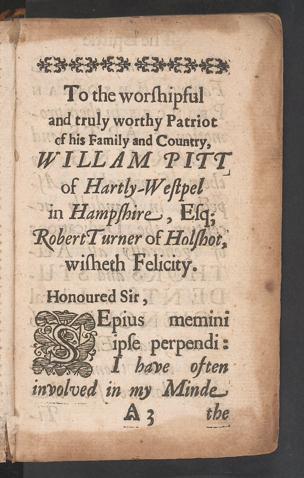 To the worſhipful
and truly worthy Patriot
of his Family and Country,
WILLAM PITT
of Hartly-Weſtpel
in Hampſhire, Eſq;
Robert Turner of Holſhot,
wiſheth Felicity.
Honoured Sir,
SEpius memini
ipſe perpendi:
I have often
involved in my Minde
A 3 the